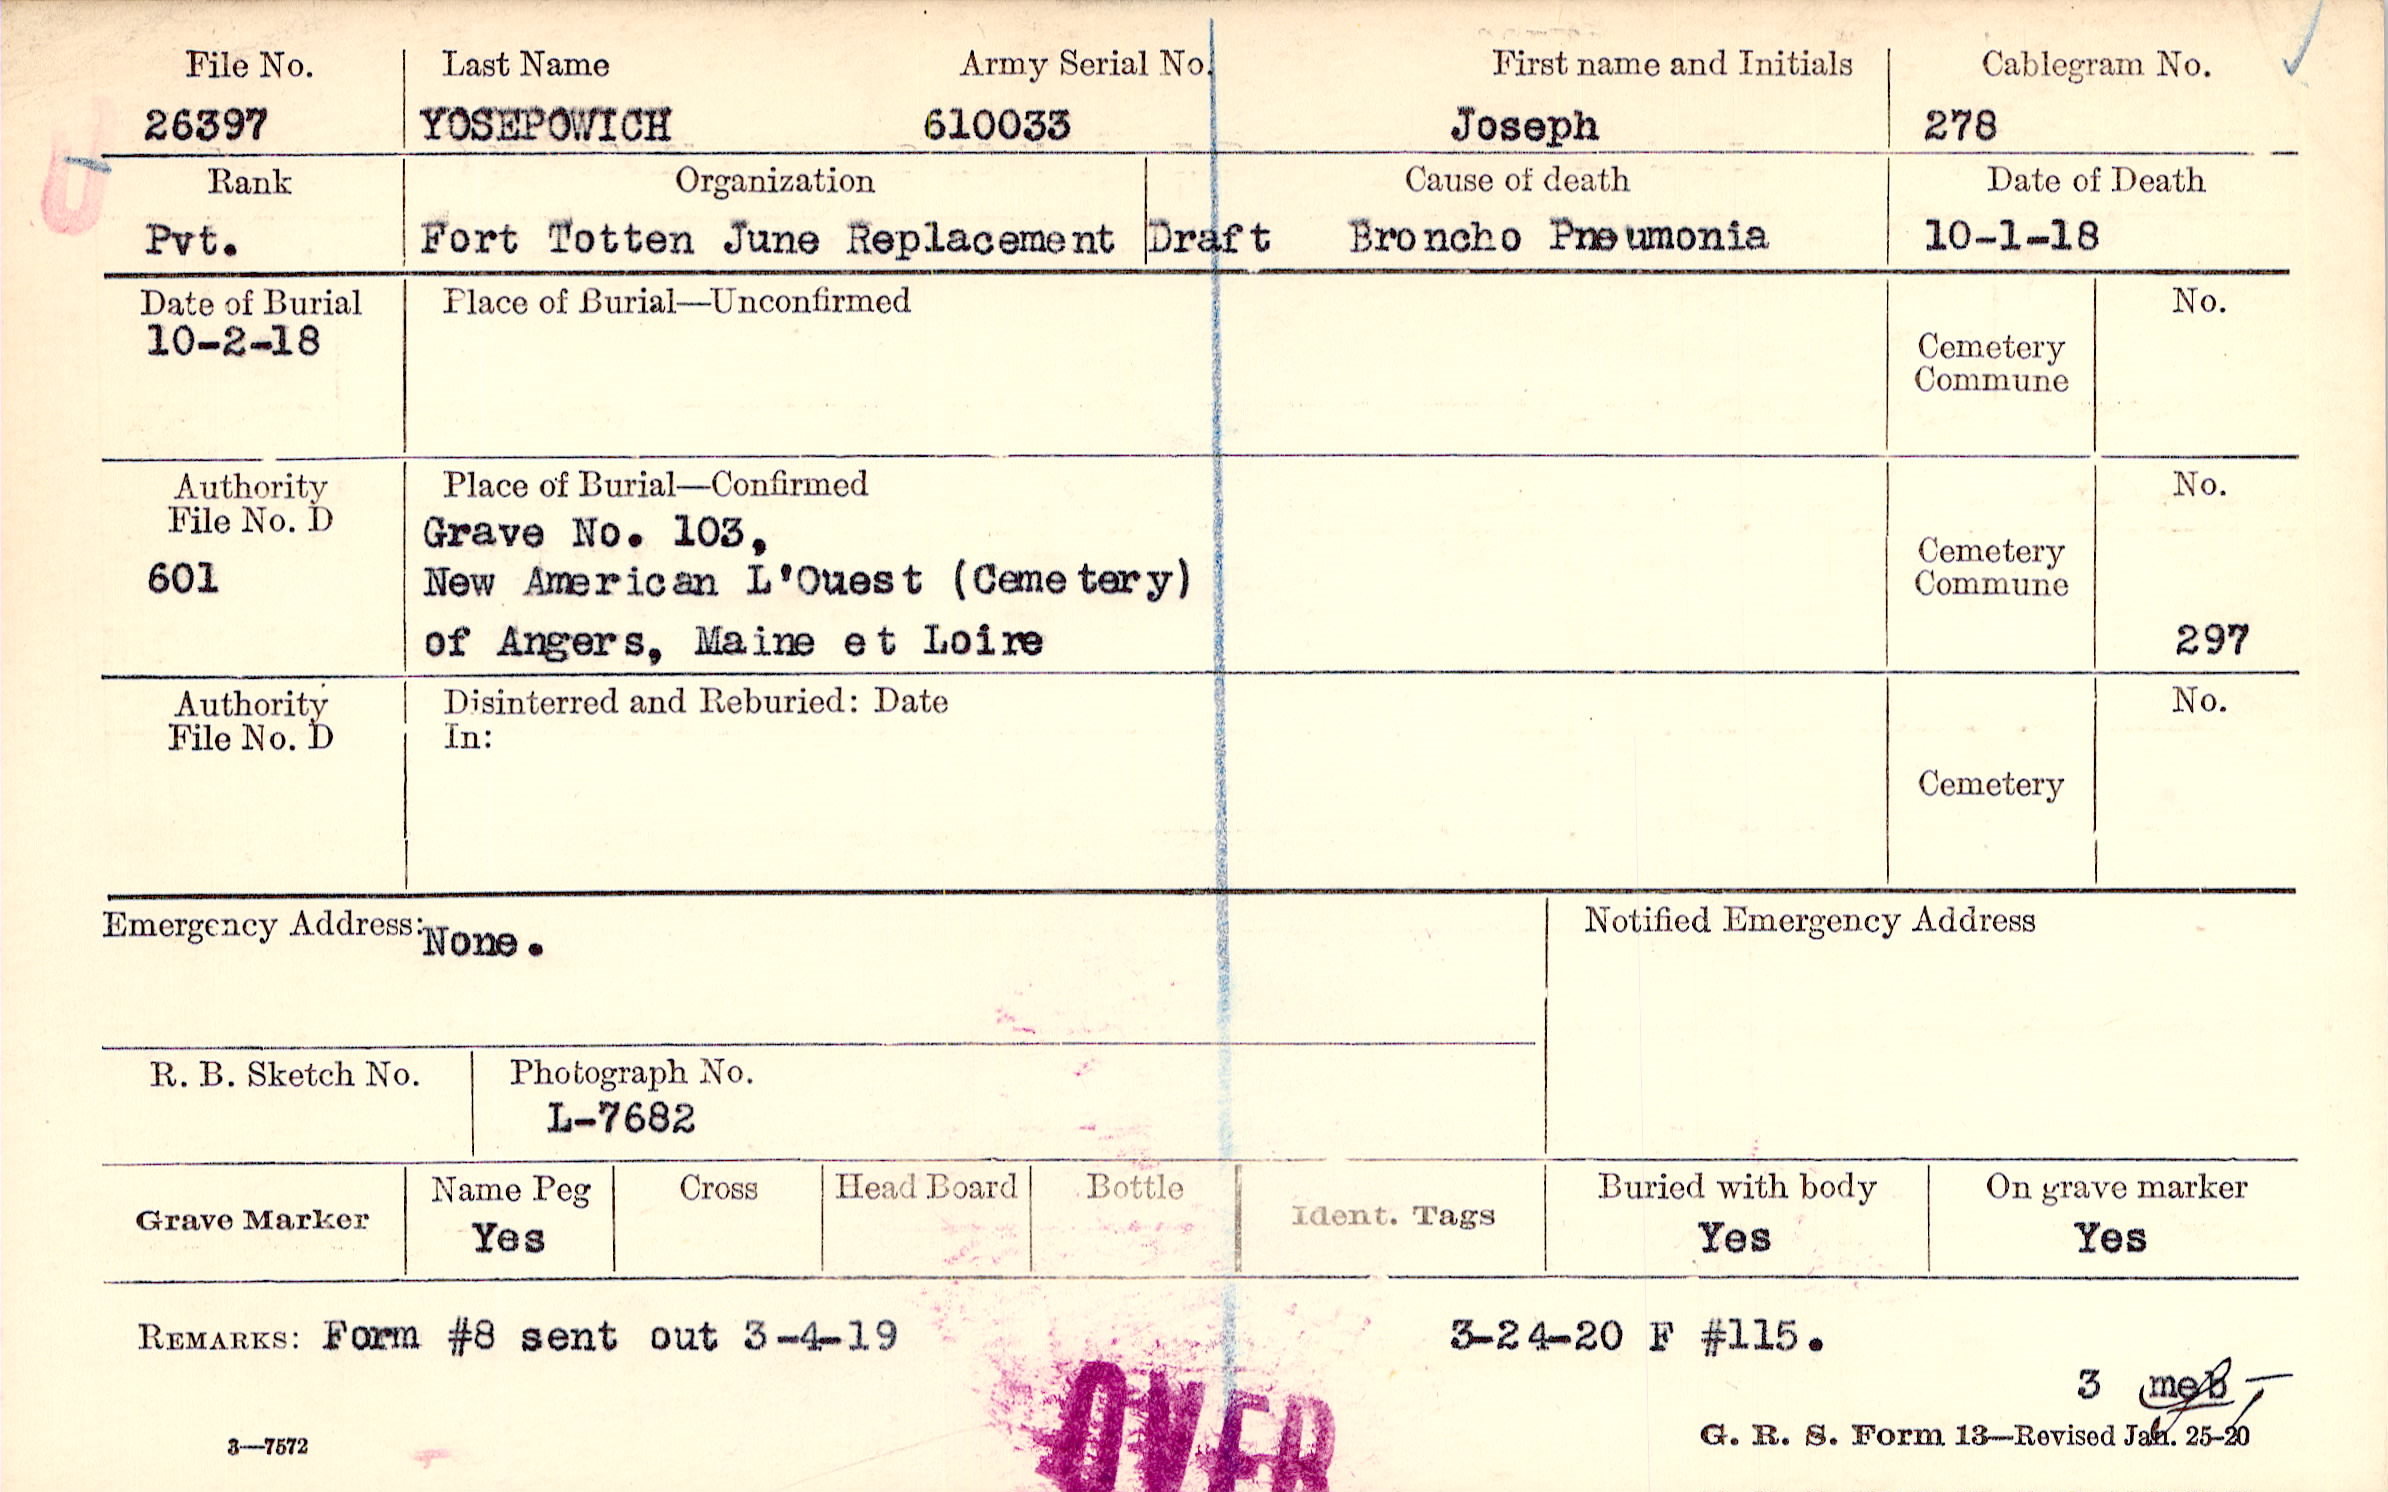 File No. Last Name Army Serial No. First name and Initials Cablegram No.
26397 YOSEPOWICH 610033 Joseph 278
Rank Organization Cause of death Date of Death
Pvt. Fort Totten June Replacement Draft Broncho Pneumonia 10-1-18
Date of Burial Place of Burial—Unconfirmed No.
10-2-18
Cemetery
Commune
Authority Place of Burial—Confirmed No.
File No. D
Grave No. 103,
601 New American L'Ouest (Cemetery)
Cemetery
Commune
of Angers, Maine et Loire 297
Authority Disinterred and Reburied: Date No.
File No. D In:
Cemetery
Emergency Address: None. Notified Emergency Address
R. B. Sketch No. Photograph No.
L-7682
Grave Marker Name Peg Cross Head Board Bottle Ident. Tags Buried with body On grave marker
Yes Yes Yes
REMARKS: Form #8 sent out 3-4-19 3-24-20 F #115.
3 meb
OVER
3—7572 G. R. S. Form 13—Revised Jan. 25-20